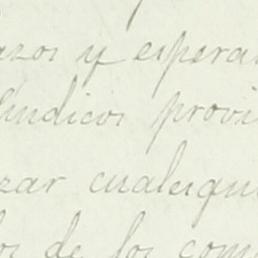 azos y espera
síndicos provi
zar cualesqui
los de los com